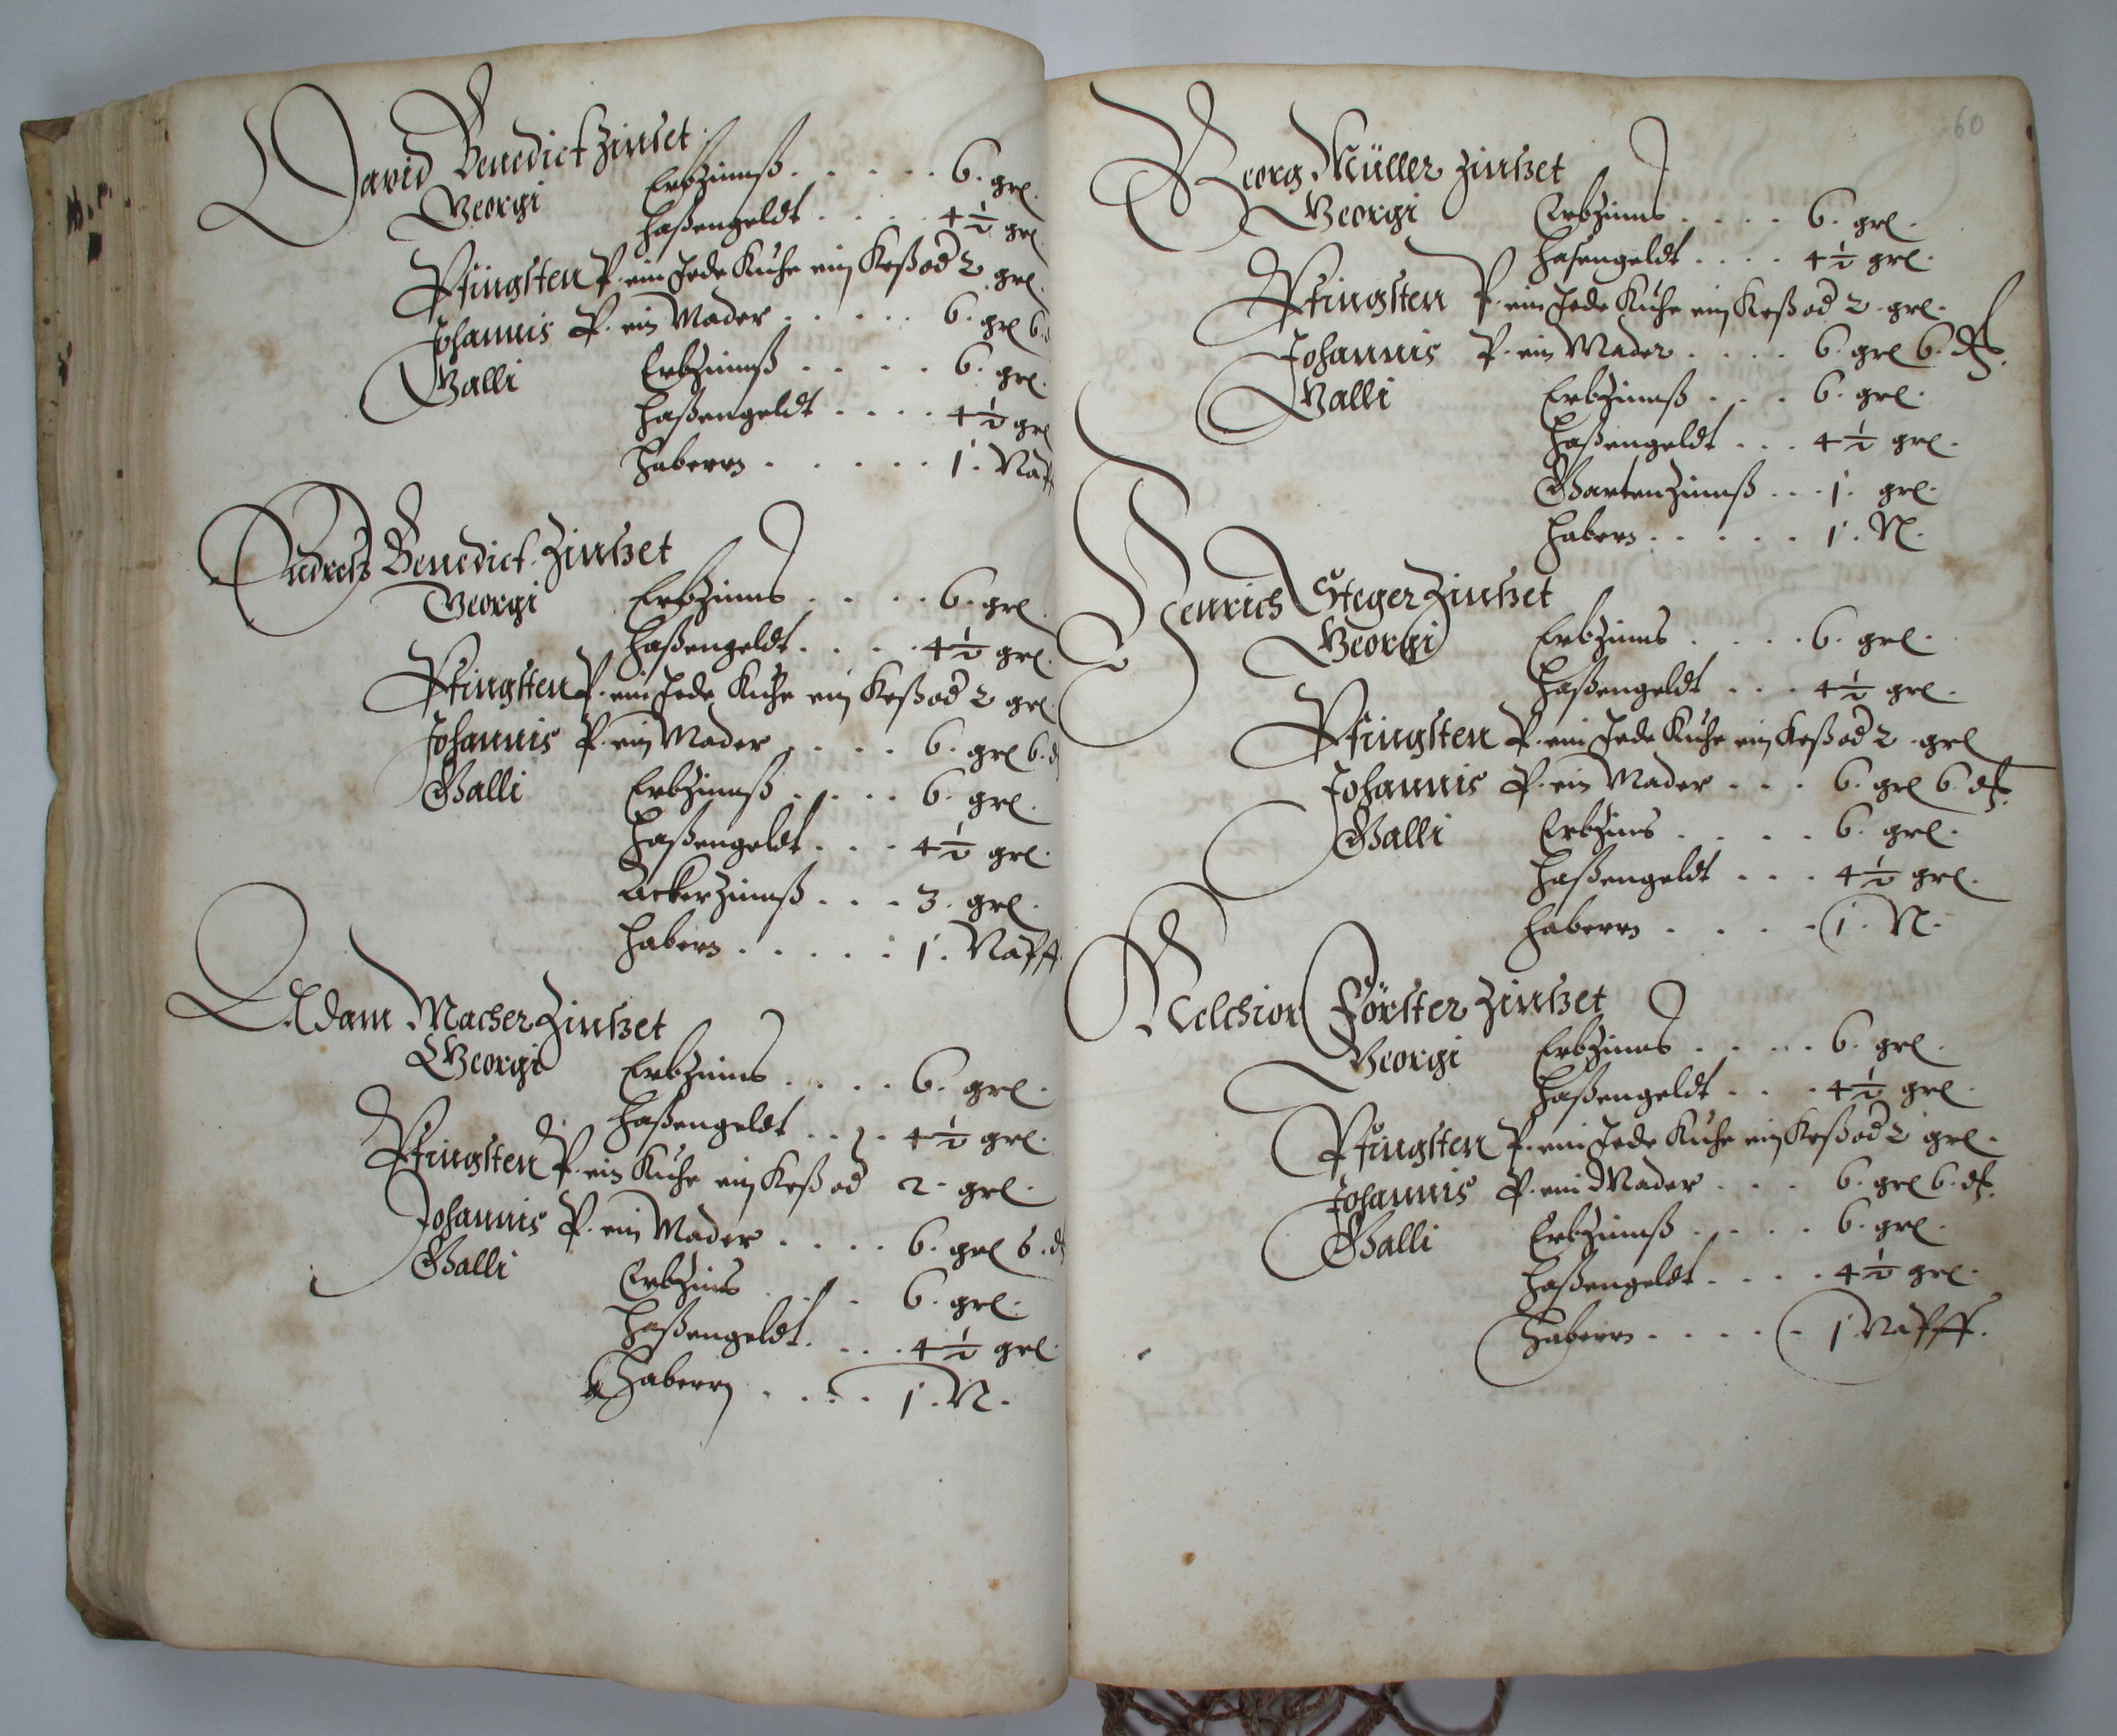 David Benedict Zinset
Georgi Erbzinnß . . . . . 6. grl.
Haßengeldt . . . . 4½ grl.
Pfingsten P. ein Jede Kuhe ein Keß od 2 grl.
Johannis P. ein Mader . . . . . 6. grl 6.
Galli Erbzinnß . . . . . 6. grl.
Haßengeldt . . . . 4½ grl
Haberrn . . . . . 1. Napf
Andreß Benedict Zinßet
Georgi Erbzinns . . . . 6. grl.
Haßengeldt . . . . 4½ grl.
Pfingsten P. ein Jede Kuhe ein Keß od 2 grl.
Johannis P. ein Mader . . . . 6. grl 6. d
Galli Erbzinnß . . . . 6. grl.
Haßengeldt . . . 4½ grl.
Ackerzinnß . . . 3. grl.
Habern . . . . . 1. Napff
Adam Macher Zinßet
Georgi Erbzinns . . . . 6. grl.
Haßengeldt . . . 4½ grl.
Pfingsten P. ein Kuhe ein Keß od 2. grl.
Johannis P. ein Mader . . . . 6. grl 6. d
Galli Erbzins . . . 6. grl.
Haßengeldt . . . 4½ grl.
Haberrn . . . . 1. N.
60
Georg Müller Zinßet
Georgi Erbzinns . . . . 6. grl.
Hasengeldt . . . . 4½ grl.
Pfingsten P. ein Jede Kuhe ein Keß od 2. grl.
Johannis P. ein Mader . . . . 6. grl 6. d.
Galli Erbzinnß . . . 6. grl.
Haßengeldt . . . 4½ grl.
Gartenzinnß . . . 1. grl.
Habern . . . . . 1. N.
Henrich Steger Zinßet
Georgi Erbzinns . . . . 6. grl.
Haßengeldt . . . 4½ grl.
Pfingsten P. ein Jede Kuhe ein Keß od 2. grl
Johannis P. ein Mader . . . 6. grl 6. d.
Galli Erbzins . . . . 6. grl.
Haßengeldt . . . 4½ grl.
Haberrn . . . . 1. N.
Melchior Förster Zinßet
Georgi Erbzinns . . . . . 6. grl.
Haßengeldt . . . 4½ grl.
Pfingsten P. ein Jede Kuhe ein Keß od 2 grl.
Johannis P. ein Mader . . . 6. grl 6. d.
Galli Erbzinnß . . . . 6. grl.
Haßengeldt . . . . 4½ grl.
Haberrn . . . . . 1 Napff.